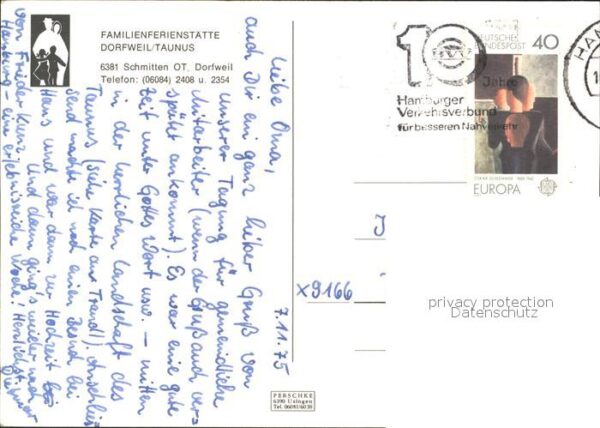 FAMILIENFERIENSTÄTTE
DORFWEIL/TAUNUS
6381 Schmitten OT. Dorfweil
Telefon: (06084) 2408 u. 2354
7.11.75
Liebe Oma,
auch Dir ein ganz lieber Gruß von
unserer Tagung für gemeindliche
Mitarbeiter (wenn der Gruß auch ver-
spätet ankommt). Es war eine gute
Zeit unter Gottes Wort usw. – mitten
in der herrlichen Landschaft des
Taunus (siehe Karte an Traudl). Anschlies-
send machte ich noch einen Besuch bei
Hans und war dann zur Hochzeit bei
von Frieder Kunz. Und dann ging's wieder nach
Hamburg – eine erlebnisreiche Woche! Herzlichst
10 HVV
Jahre
Hamburger
Verkehrsverbund
für besseren Nahverkehr
HAM
DEUTSCHE
BUNDESPOST 40
OSKAR SCHLEMMER 1888-1943
EUROPA
x9166
privacy protection
Datenschutz
PERSCHKE
6390 Usingen
Tel. 06081/6030